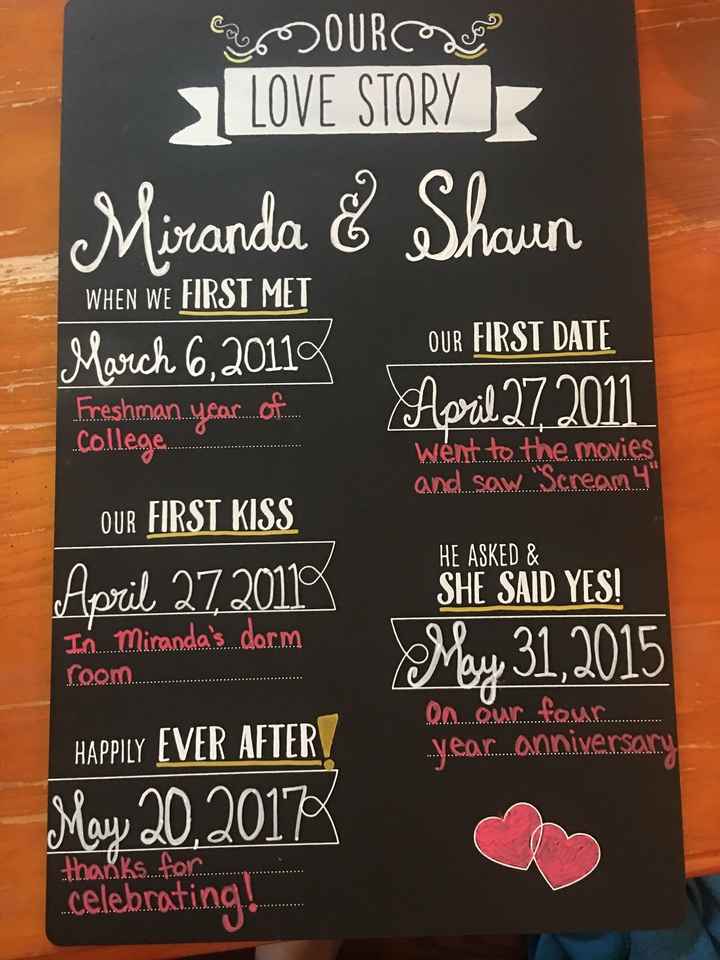 OUR
LOVE STORY
Miranda & Shaun
WHEN WE FIRST MET
March 6, 2011
Freshman year of
College
OUR FIRST DATE
April 27, 2011
went to the movies
and saw "Scream 4"
OUR FIRST KISS
April 27, 2011
In Miranda's dorm
room
HE ASKED &
SHE SAID YES!
May 31, 2015
On our four
year anniversary
HAPPILY EVER AFTER!
May 20, 2017
thanks for
celebrating!